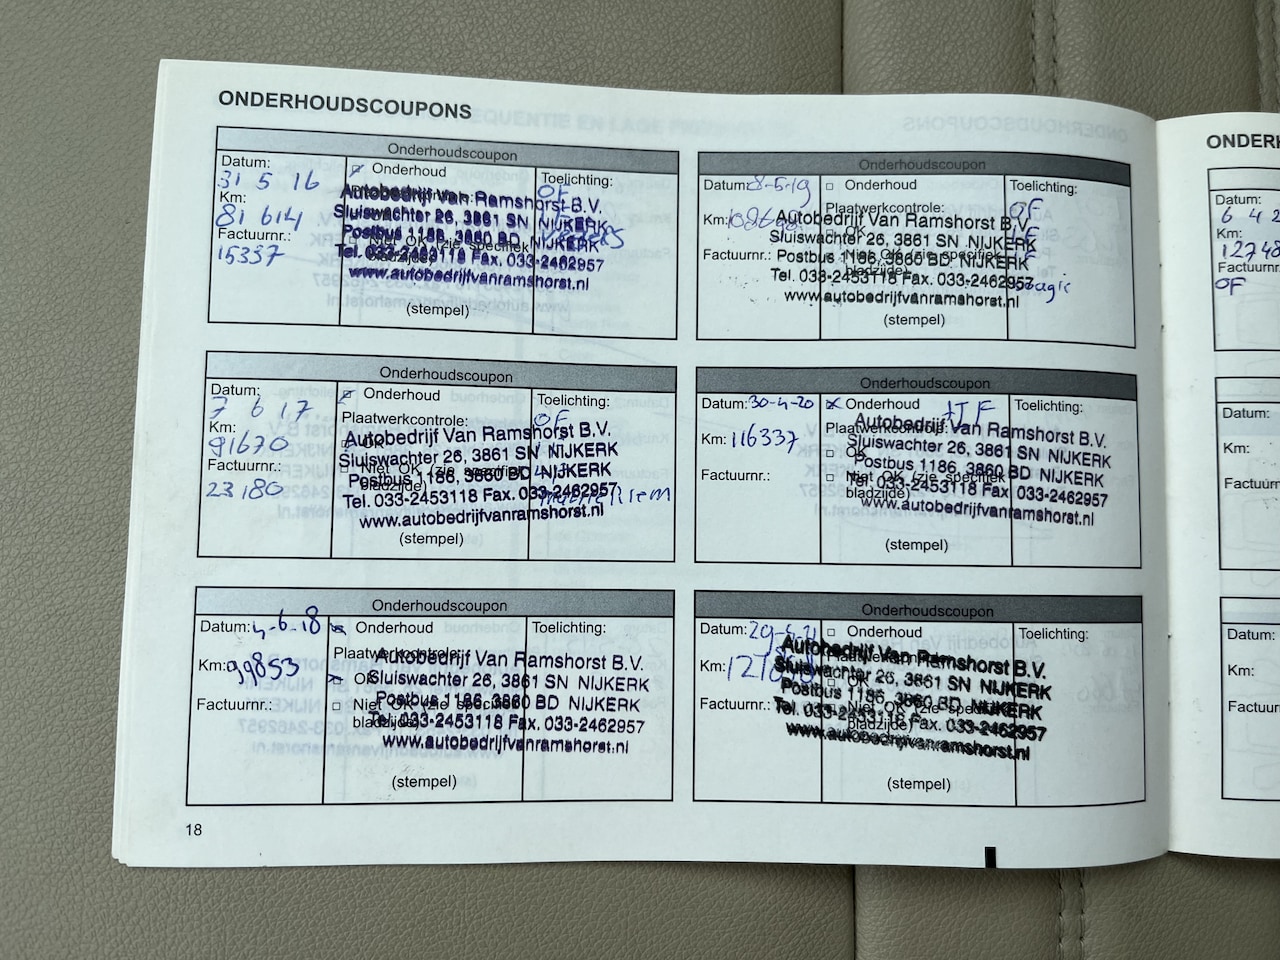 ONDERHOUDSCOUPONS
Onderhoudscoupon
Datum:
31 5 16
Km:
81 614
Factuurnr.:
15337
Onderhoud
Toelichting:
OF
Autobedrijf Van Ramshorst B.V.
Sluiswachter 26, 3861 SN NIJKERK
Postbus 1186, 3860 BD NIJKERK
Niet OK (zie specifiek
bladzijde)
Tel. 033-2453118 Fax. 033-2462957
www.autobedrijfvanramshorst.nl
(stempel)
Onderhoudscoupon
Datum:
7 6 17
Km:
91670
Factuurnr.:
23180
Onderhoud
Plaatwerkcontrole:
Toelichting:
OF
Autobedrijf Van Ramshorst B.V.
Sluiswachter 26, 3861 SN NIJKERK
Niet OK (zie specifiek
bladzijde)
Postbus 1186, 3860 BD NIJKERK
Tel. 033-2453118 Fax. 033-2462957
www.autobedrijfvanramshorst.nl
(stempel)
Onderhoudscoupon
Datum: 4-6-18
Km: 99853
Factuurnr.:
Onderhoud
Plaatwerkcontrole:
OK
Niet OK (zie specifiek
bladzijde)
Toelichting:
Autobedrijf Van Ramshorst B.V.
Sluiswachter 26, 3861 SN NIJKERK
Postbus 1186, 3860 BD NIJKERK
Tel. 033-2453118 Fax. 033-2462957
www.autobedrijfvanramshorst.nl
(stempel)
18
Onderhoudscoupon
Datum: 8-5-19
Km:
Factuurnr.:
Onderhoud
Plaatwerkcontrole:
OK
Niet OK (zie specifiek
bladzijde)
Toelichting:
OF
Autobedrijf Van Ramshorst B.V.
Sluiswachter 26, 3861 SN NIJKERK
Postbus 1186, 3860 BD NIJKERK
Tel. 033-2453118 Fax. 033-2462957
www.autobedrijfvanramshorst.nl
(stempel)
Onderhoudscoupon
Datum: 30-4-20
Km: 116337
Factuurnr.:
Onderhoud
Plaatwerkcontrole:
OK
Niet OK (zie specifiek
bladzijde)
Toelichting:
Autobedrijf Van Ramshorst B.V.
Sluiswachter 26, 3861 SN NIJKERK
Postbus 1186, 3860 BD NIJKERK
Tel. 033-2453118 Fax. 033-2462957
www.autobedrijfvanramshorst.nl
(stempel)
Onderhoudscoupon
Datum: 29-4-21
Km:
Factuurnr.:
Onderhoud
OK
Niet OK (zie specifiek
bladzijde)
Toelichting:
Autobedrijf Van Ramshorst B.V.
Sluiswachter 26, 3861 SN NIJKERK
Postbus 1186, 3860 BD NIJKERK
Tel. 033-2453118 Fax. 033-2462957
www.autobedrijfvanramshorst.nl
(stempel)
ONDERH
Datum:
6 4 2
Km:
12748
Factuurn
OF
Datum:
Km:
Factuurn
Datum:
Km:
Factuur